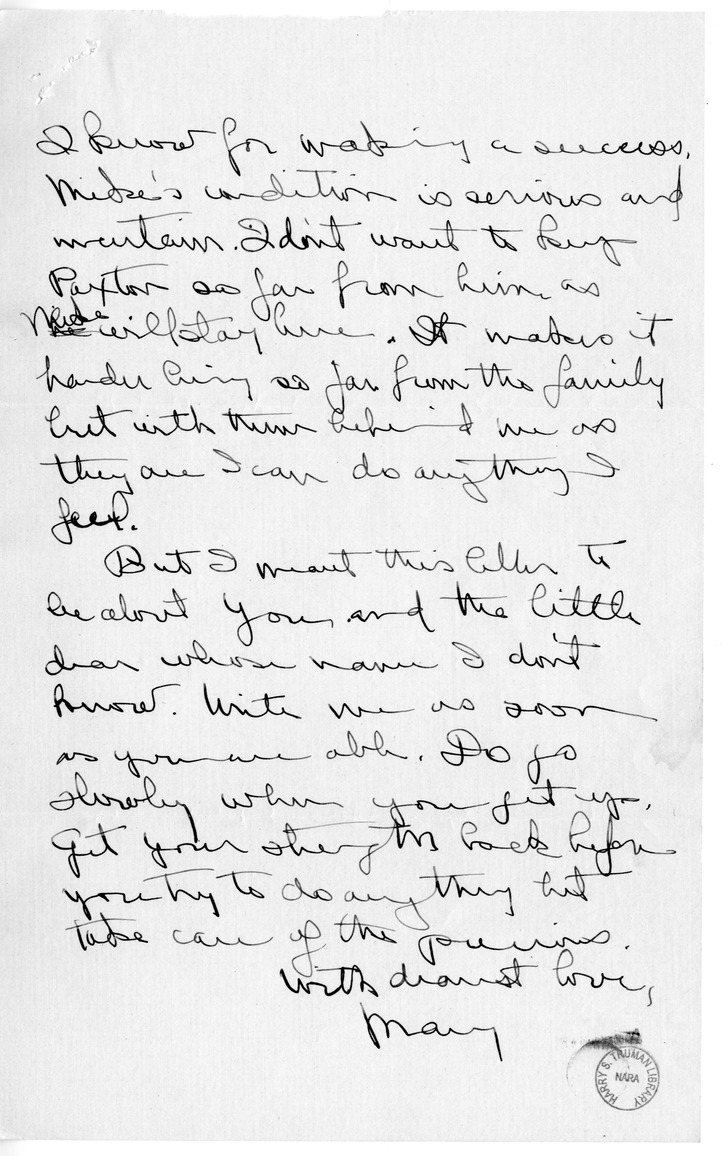 I know for making a success.
Mike's condition is serious and
uncertain. I don't want to keep
Paxton so far from him, as
Mike will stay here. It makes it
harder being so far from the family
but with them behind me as
they are I can do anything I
feel.
But I meant this letter to
be about you, and the little
dear whose name I don't
know. Write me as soon
as you are able. Do go
slowly when you get up.
Get your strength back before
you try to do anything but
take care of the precious.
With dearest love,
Mary
HARRY S. TRUMAN LIBRARY
NARA